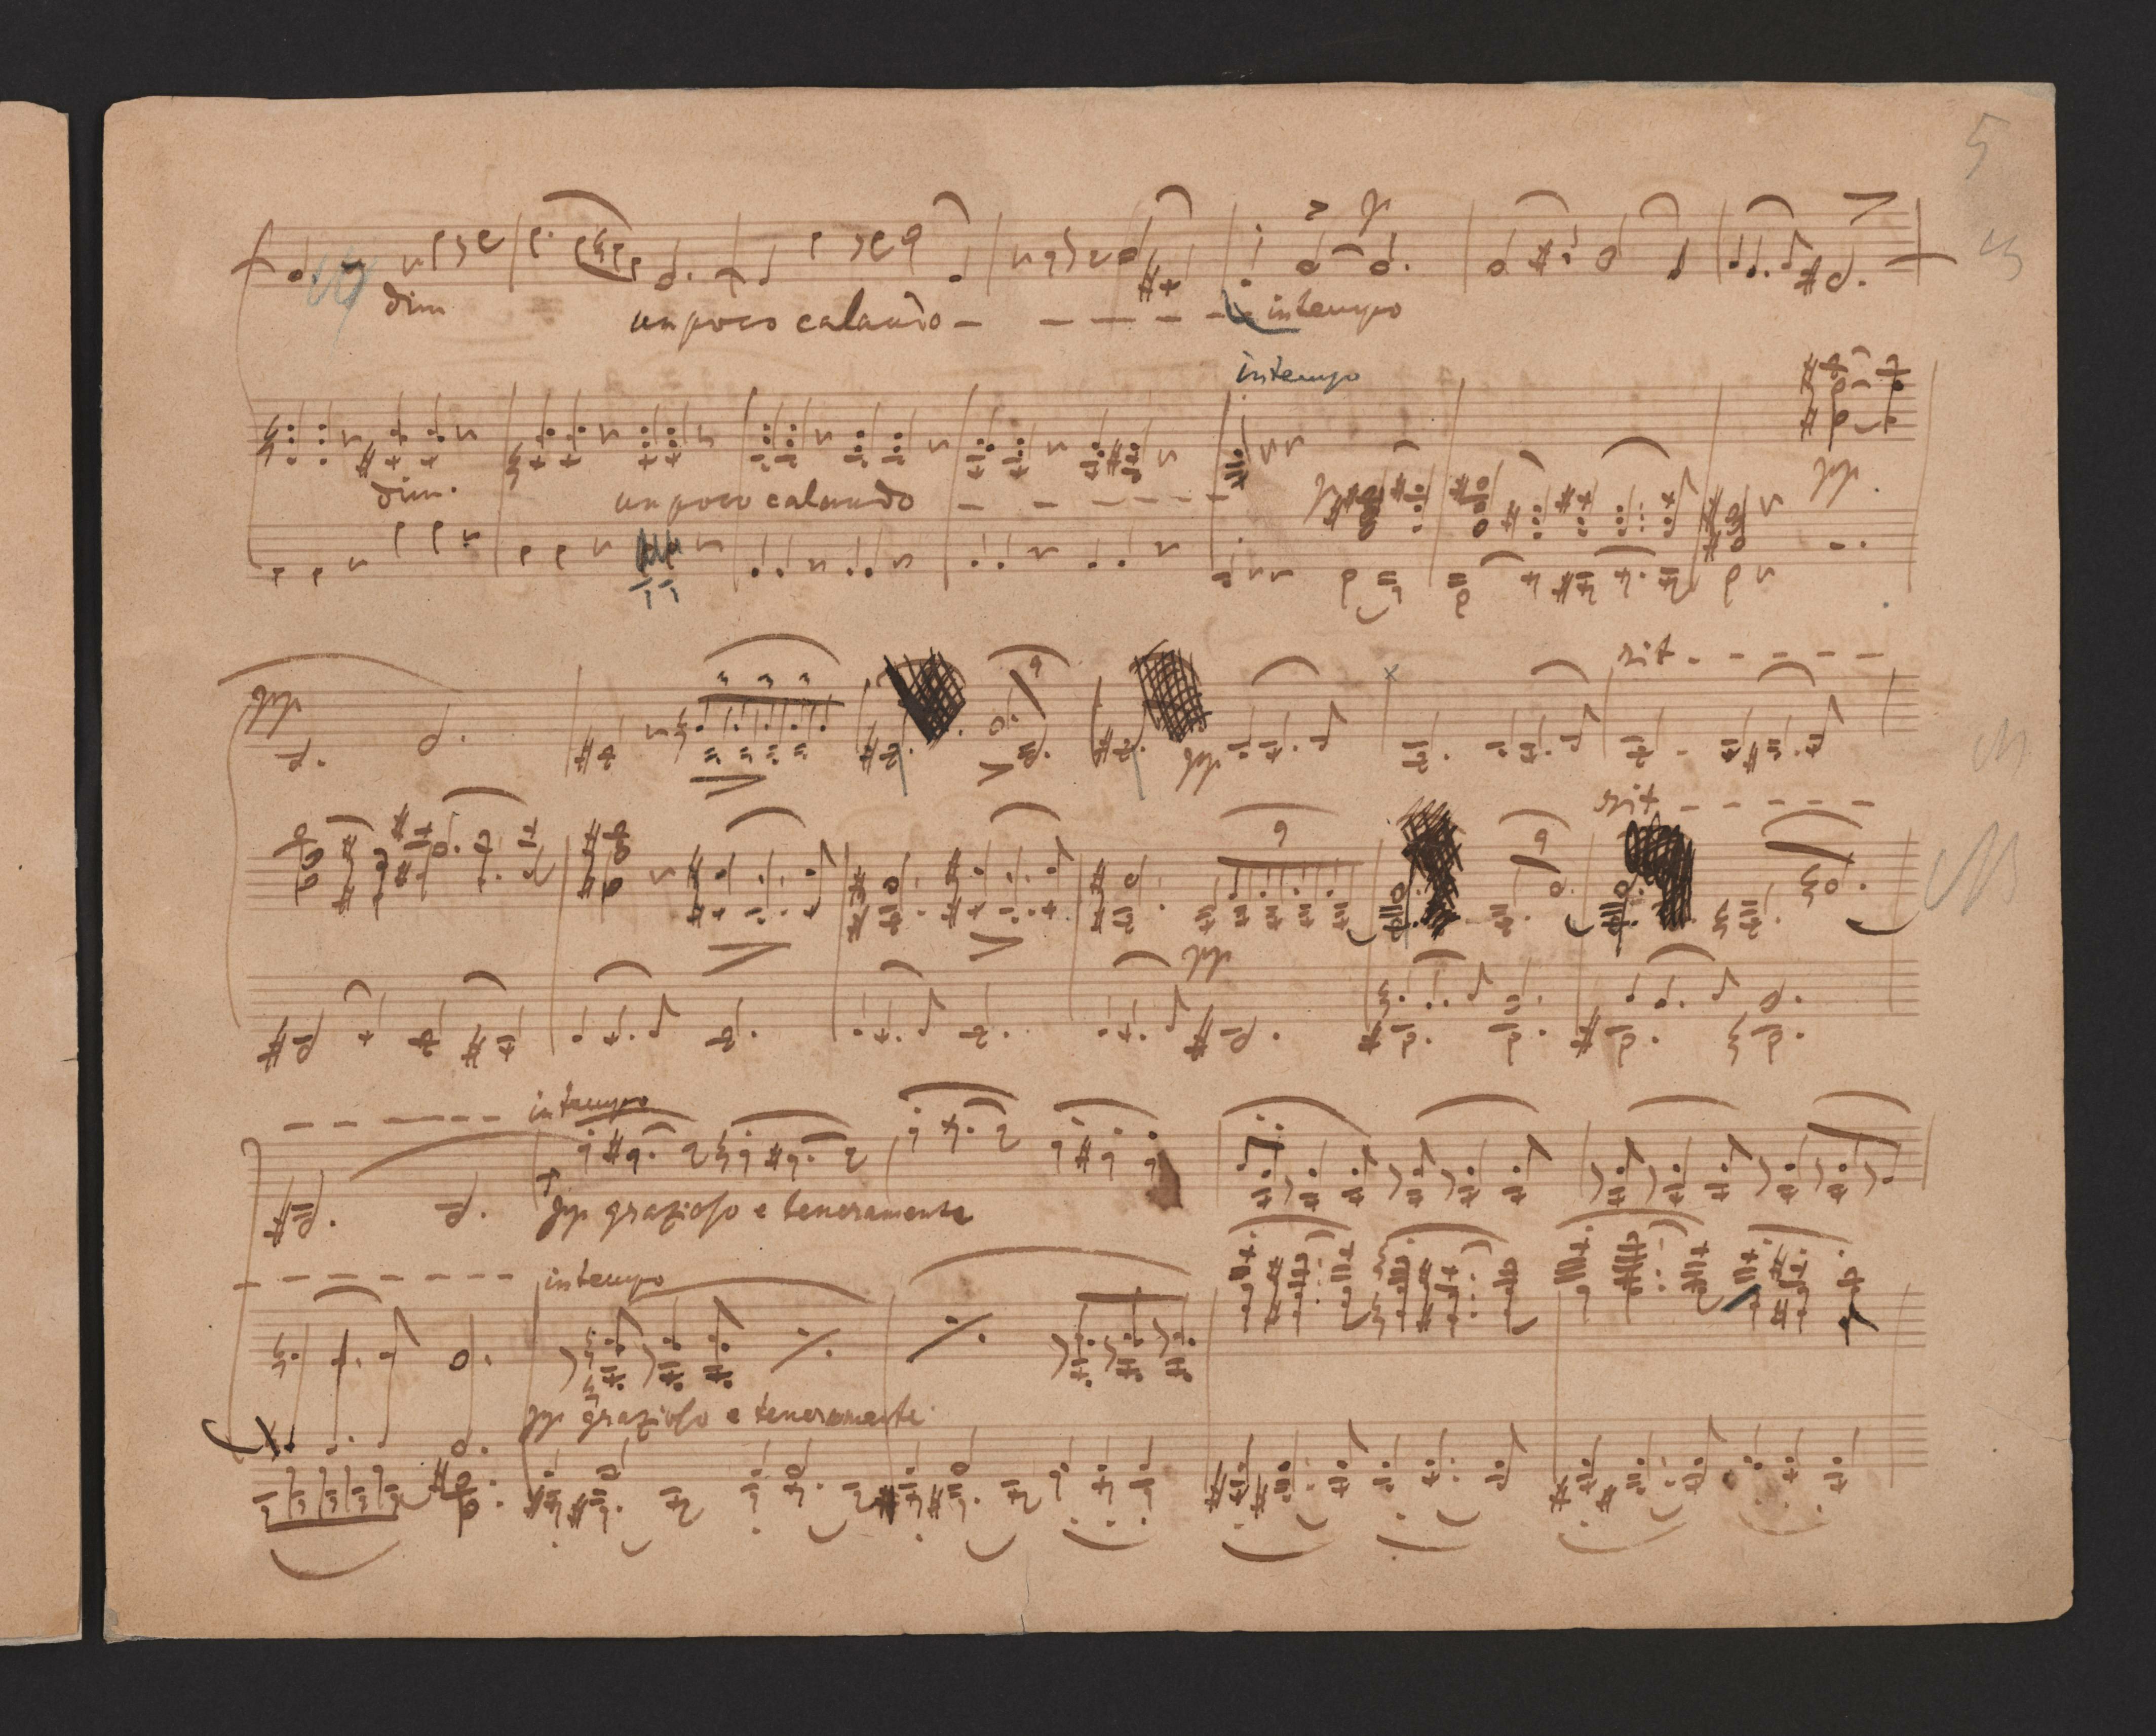 5
p
dim
un poco calando
in tempo
in tempo
p
dim.
un poco calando
pp.
rit.
pp
3 3 3
9
pp
rit
9
9
pp
in tempo
pp grazioso e teneramente
in tempo
pp grazioso e teneramente